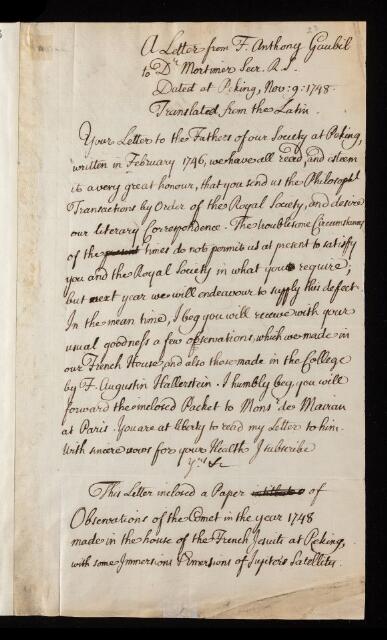 A Letter from F. Anthony Gaubil
to Dr. Mortimer Secr. R.S.
Dated at Peking, Nov: 9: 1748.
Translated from the Latin.
Your Letter to the Fathers of our Society at Peking,
written in February 1746, we have all read, and esteem
it a very great honour, that you send us the Philosophl
Transactions by Order of the Royal Society, and desire
our literary Correspondence. The troublesome Circumstances
of the present times do not permit us at present to satisfy
you and the Royal Society in what you require,
but next year we will endeavour to supply this defect.
In the mean time, I beg you will receive with your
usual goodness a few observations, which we made in
our French House, and also those made in the College
by F. Augustin Hallerstein. I humbly beg, you will
forward the inclosed Packet to Monsr de Mairan
at Paris. You are at liberty to read my Letter to him.
With sincere vows for your Health I subscribe
Yrs &c
This Letter inclosed a Paper of
Observations of the Comet in the year 1748
made in the house of the French Jesuits at Peking,
with some Immersions & Emersions of Jupiter's Satellites.